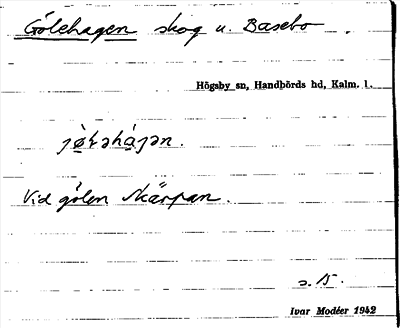 Gölehagen skog u. Basebo.
Högsby sn, Handbörds hd, Kalm. l.
Vid gölen Skärpan.
s. 15.
Ivar Modéer 1942